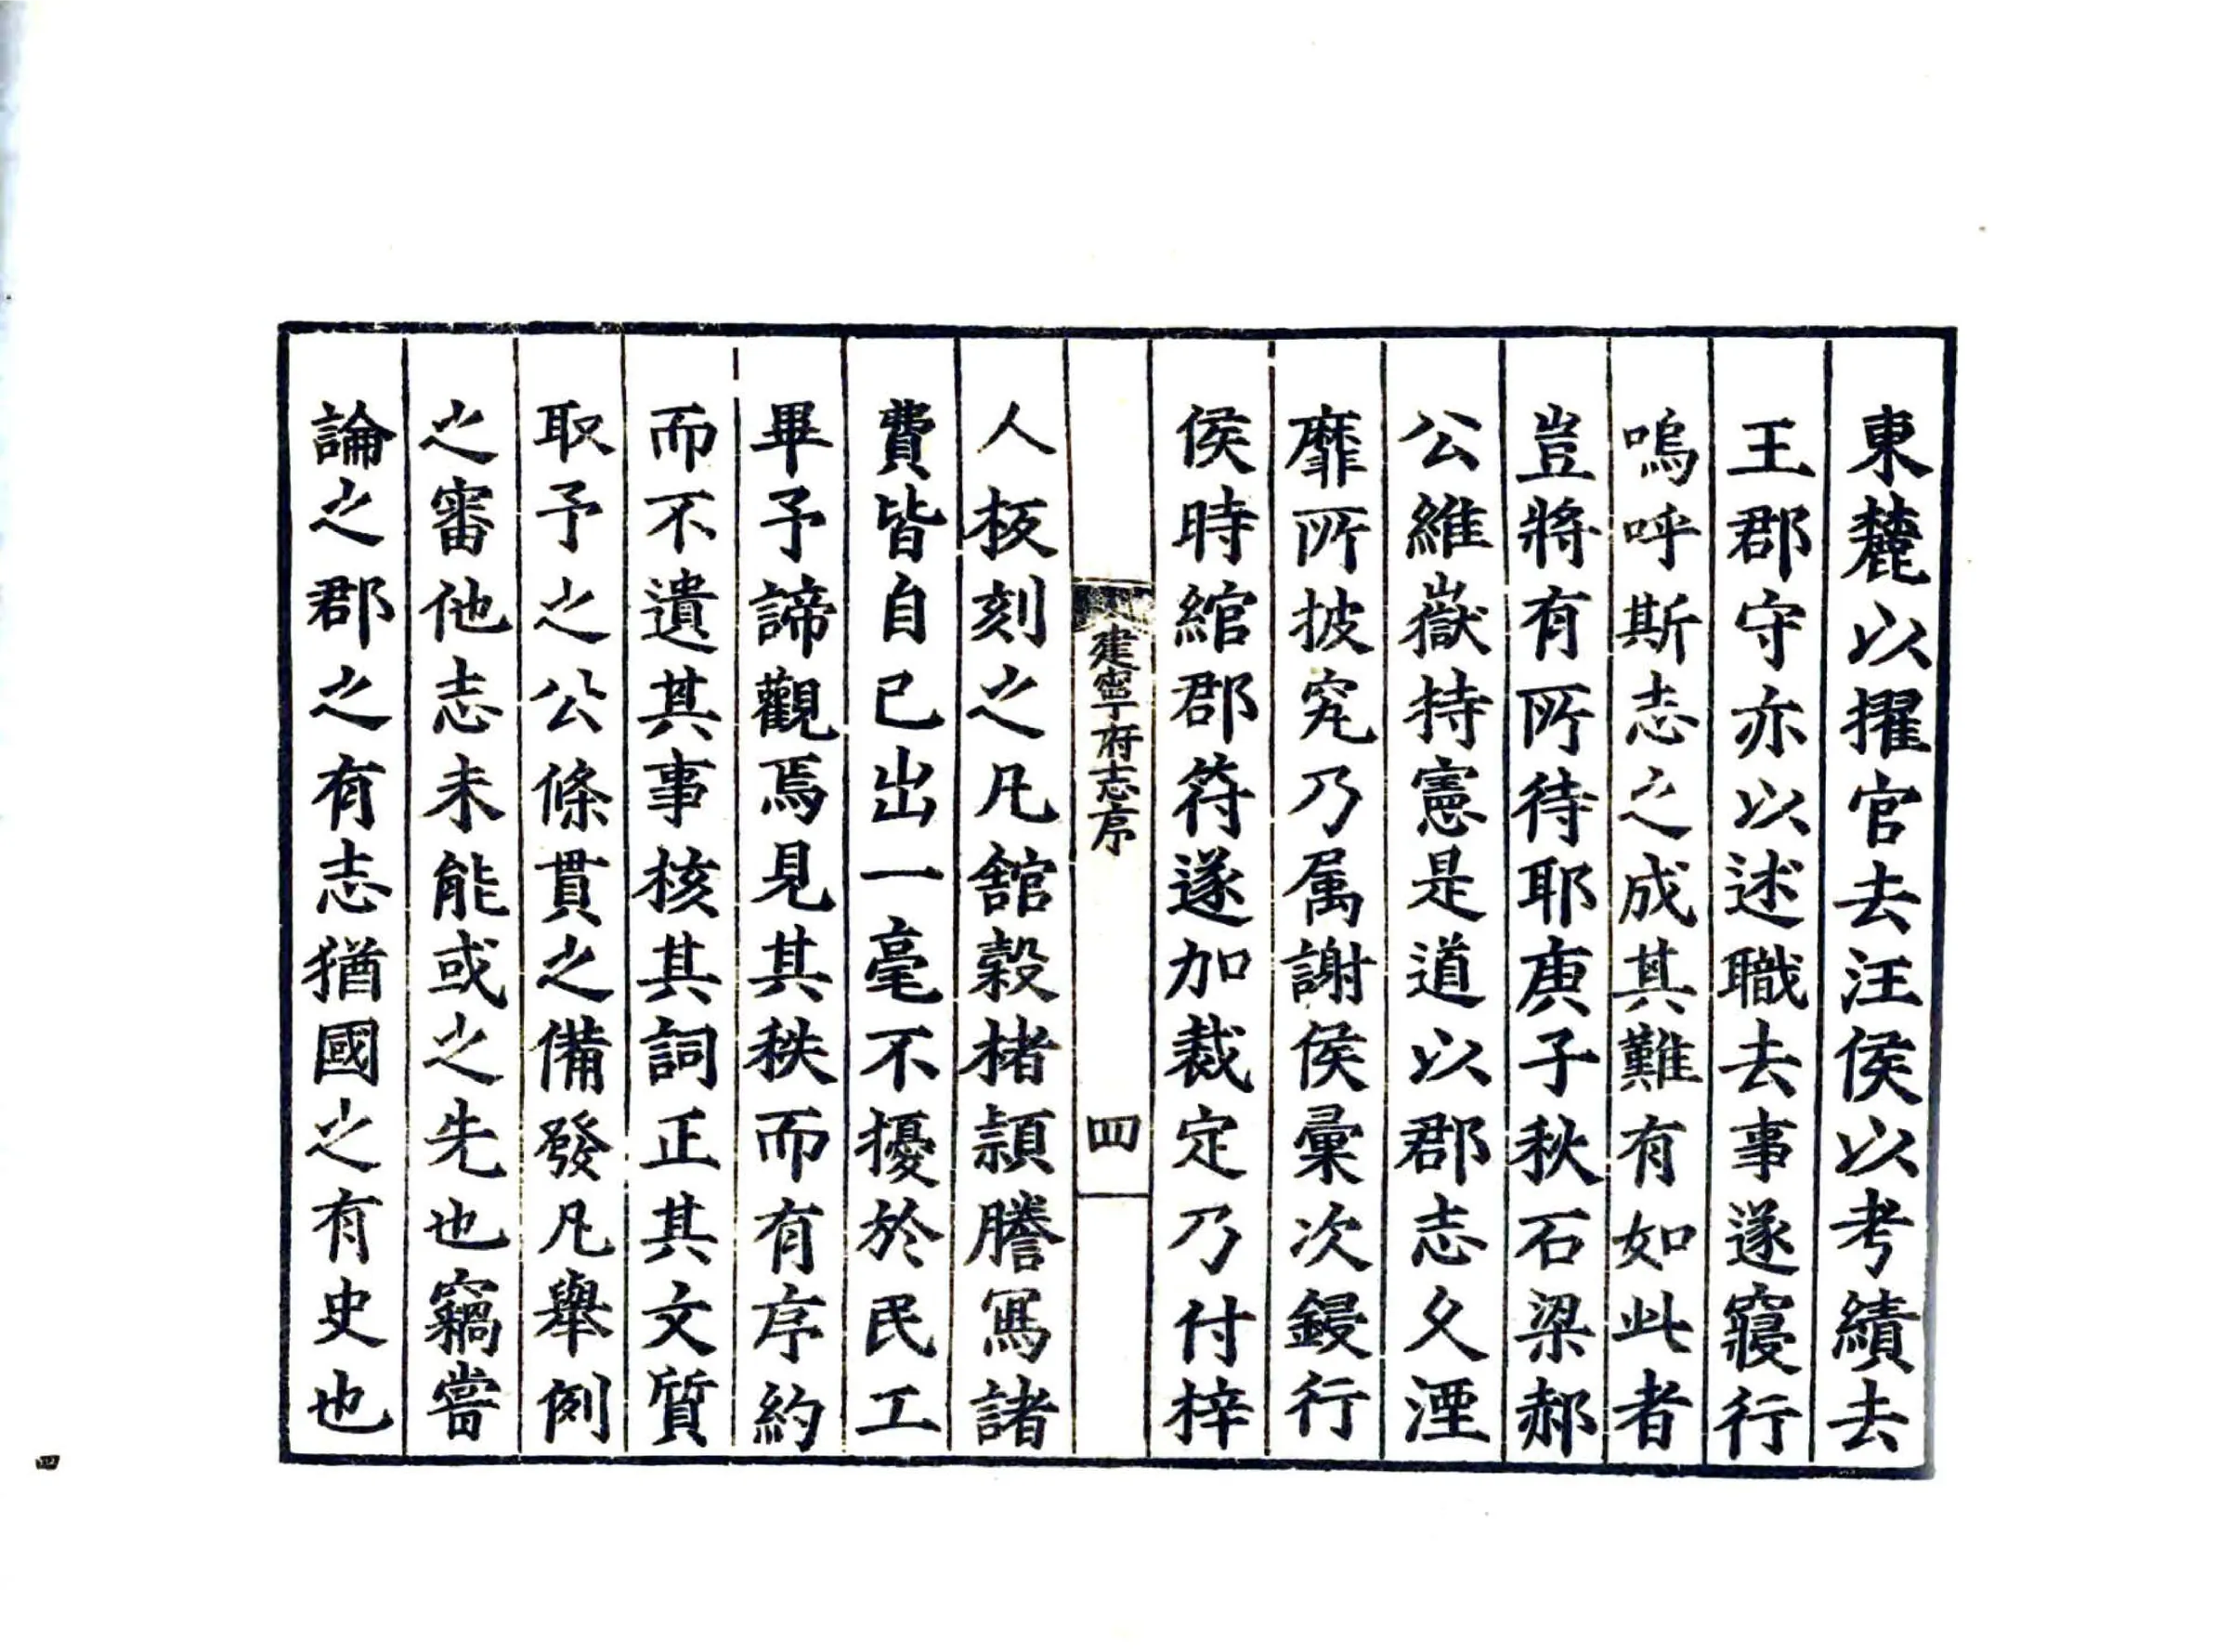 東麓以擢官去汪侯以考績去
王郡守亦以述職去事遂寢行
嗚呼斯志之成其難有如此者
豈將有所待耶庚子秋石梁郝
公維嶽持憲是道以郡志久湮
靡所披究乃属謝侯彚次鋟行
侯時綰郡符遂加裁定乃付梓
建寧府志序
四
人板刻之凡舘穀楮頴謄冩諸
費皆自己出一毫不擾於民工
畢予諦觀焉見其秩而有序約
而不遺其事核其詞正其文質
取予之公條貫之備發凡舉例
之審他志未能或之先也竊嘗
論之郡之有志猶國之有史也
四